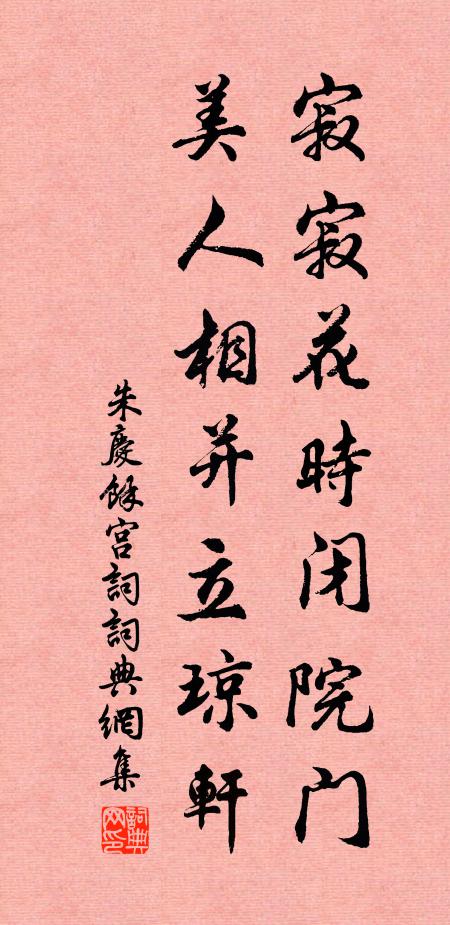 寂寂花時闭院門
美人相并立琼軒
朱慶餘宫詞詞典網集
詞典
网印